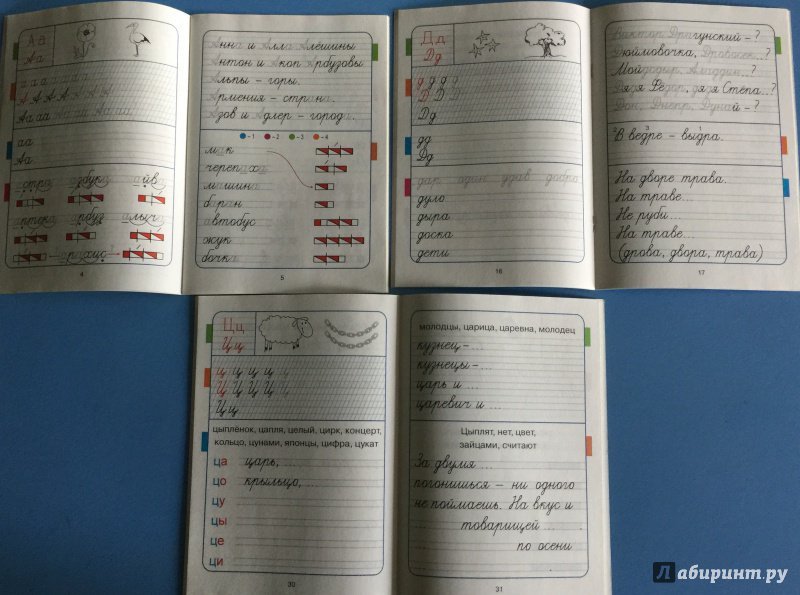 Аа
Аа
а а а
А А А А А А А
Аа Аа Аа Аа Аа
аа
Аа
астра азбука айва
аптека арбуз алыча
арахис
4
Анна и Алла Алёшины
Антон и Акоп Арбузовы
Альпы – горы.
Армения – страна.
Азов и Адлер – города.
– 1 – 2 – 3 – 4
мак
черепаха
машина
баран
автобус
жук
бочка
5
Дд
Дд
д д д д
Д Д Д
Дд
дд
Дд
дар один удав добро
дуло
дыра
доска
дети
16
Виктор Драгунский – ?
Дюймовочка, Дровосек...?
Мойдодыр, Аладдин...?
Дядя Фёдор, дядя Стёпа...?
Дон, Днепр, Дунай – ?
В ведре – выдра.
На дворе трава.
На траве...
Не руби...
На траве...
(дрова, двора, трава)
17
Цц
Цц
ц ц ц ц ц
Ц Ц Ц Ц Ц
Цц
цыплёнок, цапля, целый, цирк, концерт,
кольцо, цунами, японцы, цифра, цукат
ца царь, ...
цо крыльцо, ...
цу
цы
це
ци
30
молодцы, царица, царевна, молодец
кузнец – ...
кузнецы – ...
царь и ...
царевич и ...
Цыплят, нет, цвет,
зайцами, считают
За двумя ...
погонишься – ни одного
не поймаешь. На вкус и
... товарищей ...
... по осени
31
Лабиринт.ру